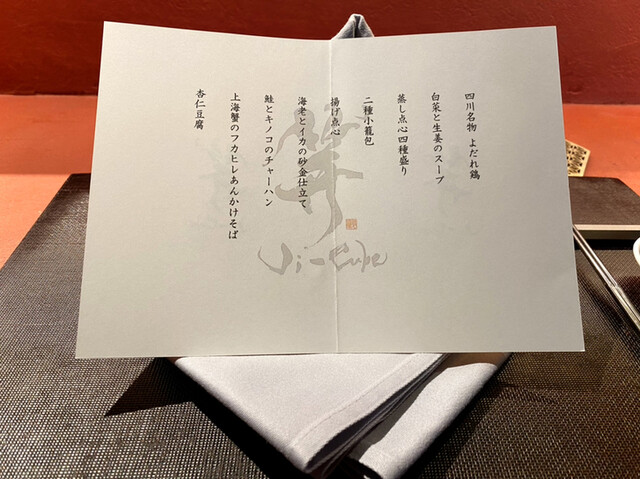 四川名物 よだれ鶏
白菜と生姜のスープ
蒸し点心四種盛り
二種小籠包
揚げ点心
海老とイカの砂金仕立て
鮭とキノコのチャーハン
上海蟹のフカヒレあんかけそば
杏仁豆腐
Ji-Cube